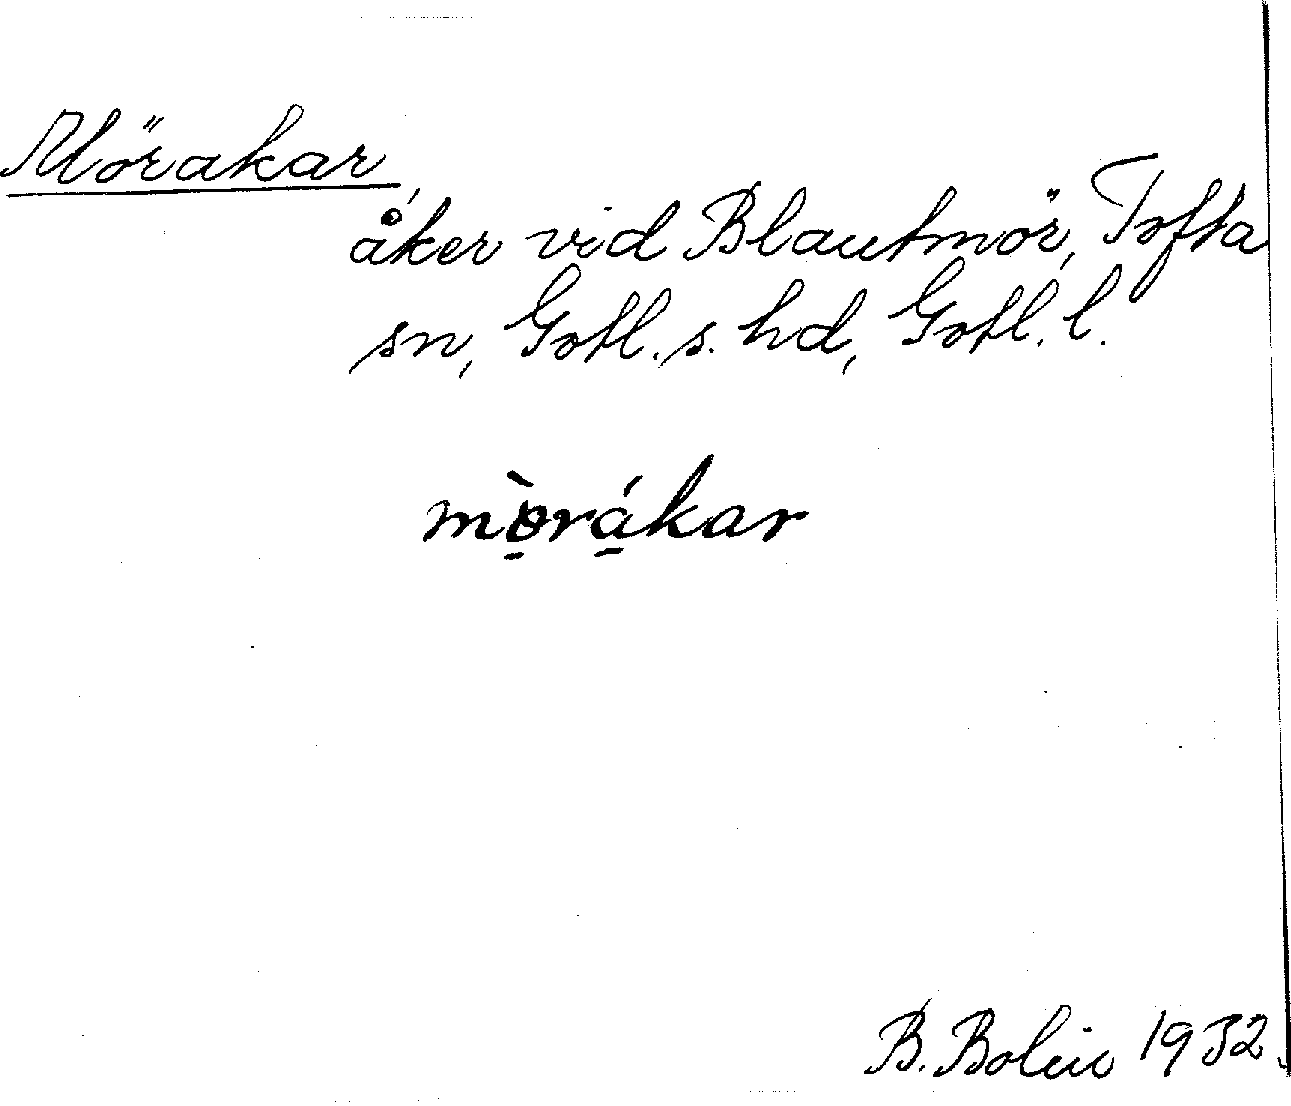 Mörakar,
åker vid Blautmör, Tofta
sn, Gotl. s. hd, Gotl. l.
mø̱̀rá̱kar
B. Bolin 1932.